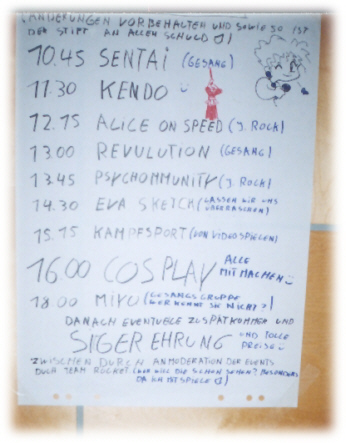 ÄNDERUNGEN VORBEHALTEN UND SOWIE SO IST
DER STIFT AN ALLEN SCHULD
10.45 SENTAI (GESANG)
11.30 KENDO
12.15 ALICE ON SPEED (J. ROCK)
13.00 REVULUTION (GESANG)
13.45 PSYCHOMMUNITY (J. ROCK)
14.30 EVA SKETCH (LASSEN WIR UNS
ÜBERRASCHEN)
15.15 KAMPFSPORT (VON VIDEOSPIELEN)
16.00 COSPLAY ALLE
MIT MACHEN
18.00 MIYU (GESANGSGRUPPE
WER KENNT SIE NICHT?)
DANACH EVENTUELE ZUSPÄTKOMMER UND
SIGER EHRUNG UND TOLLE
PREISE
ZWISCHEN DURCH ANMODERATION DER EVENTS
DUCH TEAM ROCKET (WER WILL DIE SCHON SEHEN? BESONDERS
DA ICH IST SPIELE